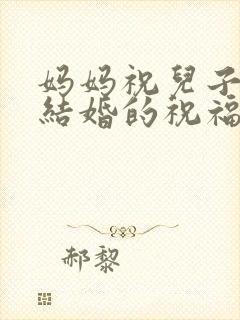 妈妈祝兒子
結婚的祝福
郝黎